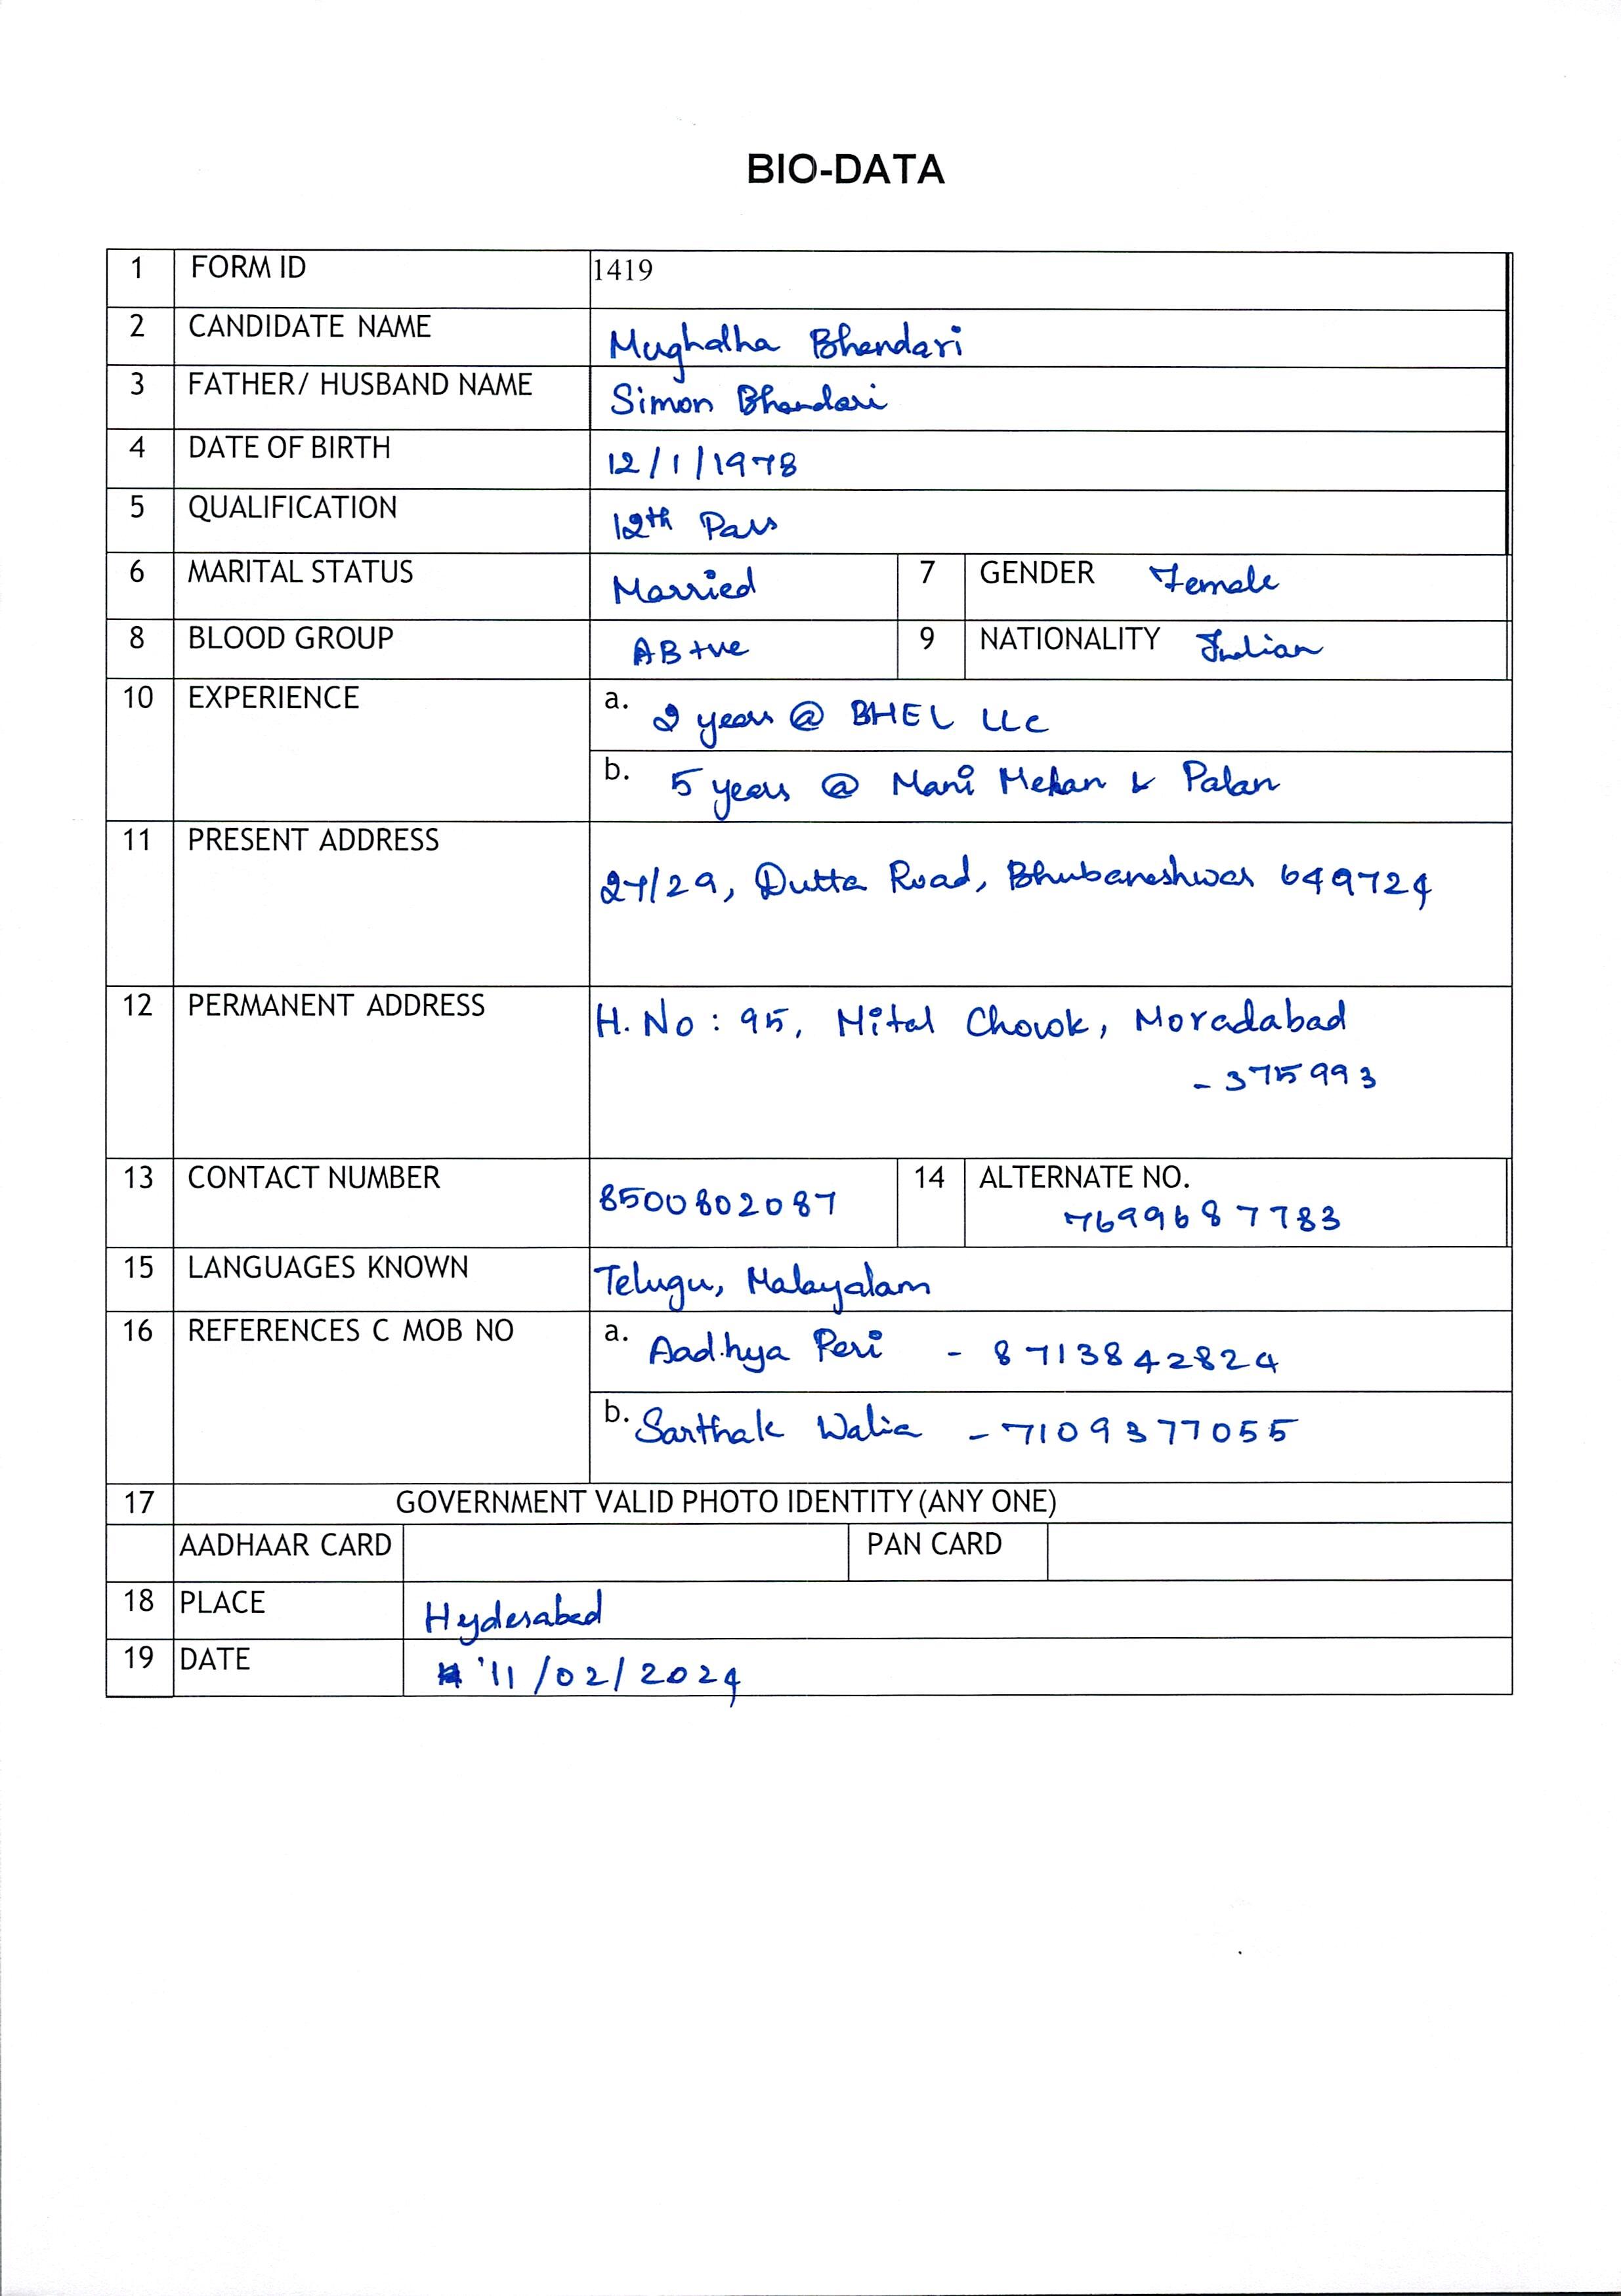 BIO-DATA
1 FORM ID 1419
2 CANDIDATE NAME Mughdha Bhandari
3 FATHER/ HUSBAND NAME Simon Bhandari
4 DATE OF BIRTH 12/1/1978
5 QUALIFICATION 12th Pass
6 MARITAL STATUS Married 7 GENDER Female
8 BLOOD GROUP AB+ve 9 NATIONALITY Indian
10 EXPERIENCE a. 2 years @ BHEL LLC
b. 5 years @ Mani Mohan & Palan
11 PRESENT ADDRESS
27/29, Dutta Road, Bhubaneshwar 649724
12 PERMANENT ADDRESS H. No : 95, Mital Chowk, Moradabad
- 375993
13 CONTACT NUMBER 8500802087 14 ALTERNATE NO.
7699687783
15 LANGUAGES KNOWN Telugu, Malayalam
16 REFERENCES C MOB NO a. Aadhya Peri - 8713842824
b. Sarthak Walia - 7109377055
17 GOVERNMENT VALID PHOTO IDENTITY (ANY ONE)
AADHAAR CARD PAN CARD
18 PLACE Hyderabad
19 DATE 11/02/2024